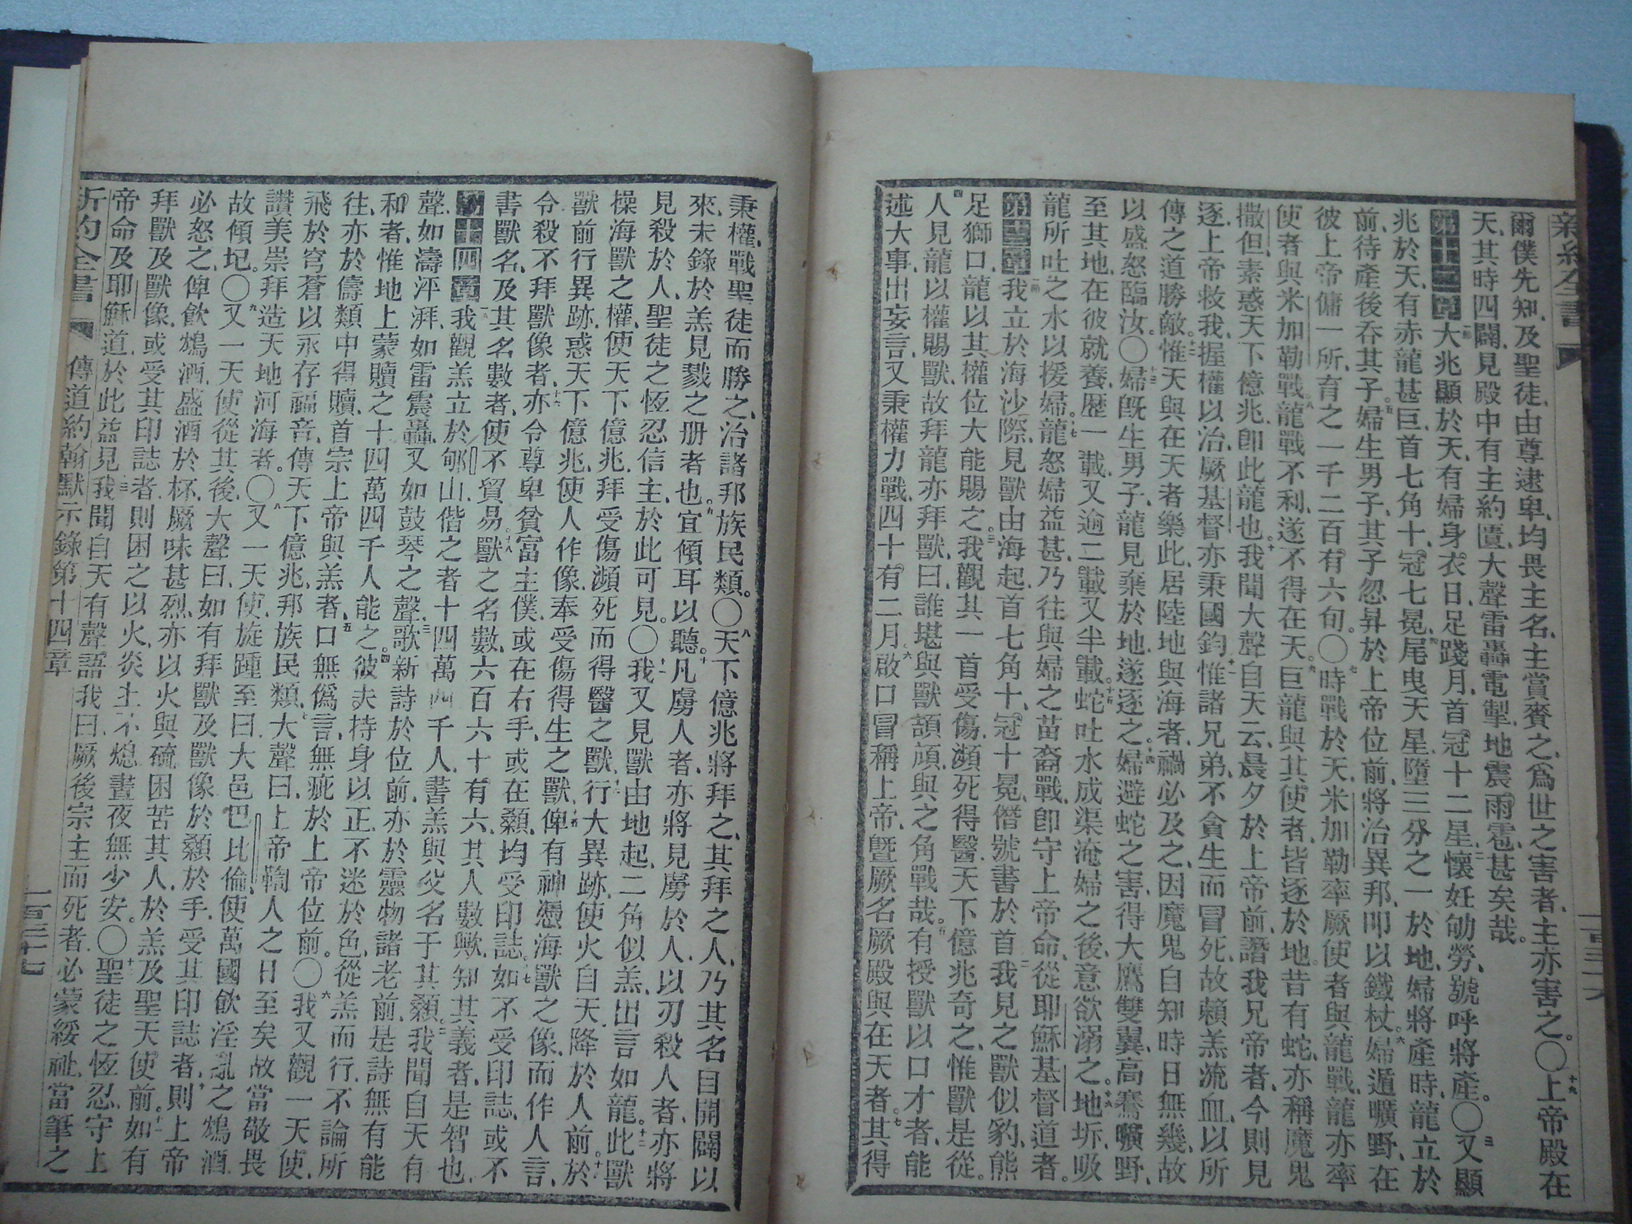 新約全書
一百三十六
爾僕先知、及聖徒、由尊逮卑、均畏主名、主賞賚之、爲世之害者、主亦害之。〇十九上帝殿在
天、其時四闢、見殿中有主約匱、大聲雷轟電掣、地震雨雹甚矣哉。
第十二章一節大兆顯於天、有婦身衣日、足踐月、首冠十二星、二懷妊劬勞、號呼將產。〇三又顯
兆於天、有赤龍甚巨、首七角十、冠七冕、四尾曳天星、墮三分之一於地、婦將產時、龍立於
前、待產後吞其子、五婦生男子、其子忽昇於上帝位前、將治異邦、叩以鐵杖、六婦遁曠野、在
彼上帝備一所、育之一千二百有六旬。〇七時戰於天、米加勒率厥使者與龍戰、龍亦率
使者與米加勒戰、八龍戰不利、遂不得在天、九巨龍與其使者、皆逐於地、昔有蛇、亦稱魔鬼
撒但、素惑天下億兆、卽此龍也、十我聞大聲自天云、晨夕於上帝前、譖我兄弟者、今則見
逐、上帝救我、握權以治、厥基督亦秉國鈞、十一惟諸兄弟、不貪生而冒死、故賴羔流血、以所
傳之道勝敵、十二惟天與在天者樂此、居陸地與海者、禍必及之、因魔鬼自知時日無幾、故
以盛怒臨汝。〇十三婦旣生男子、龍見棄於地、遂逐之、十四婦避蛇之害、得大鷹雙翼、高騫曠野、
至其地、在彼就養、歷一載、又逾二載、又半載、十五蛇吐水成渠、淹婦之後、意欲溺之、十六地坼、吸
龍所吐之水以援婦、十七龍怒婦益甚、乃往與婦之苗裔戰、卽守上帝命、從耶穌基督道者。
第十三章一節我立於海沙際、見獸由海起、首七角十、冠十冕、僭號書於首、二我見之獸似豹、熊
足獅口、龍以其權位大能賜之、三我觀其一首受傷瀕死、得醫、天下億兆奇之、惟獸是從、
四人見龍以權賜獸、故拜龍亦拜獸、曰、誰堪與獸頡頏、與之角戰哉、五有授獸以口才者、能
述大事、出妄言、又秉權力戰四十有二月、六啟口冒稱上帝、暨厥名厥殿、與在天者、七其得
秉權、戰聖徒而勝之、治諸邦族民類。〇八天下億兆將拜之、其拜之人、乃其名自開闢以
來、未錄於羔見戮之册者也、九宜傾耳以聽、十凡虜人者、亦將見虜於人、以刃殺人者、亦將
見殺於人、聖徒之恆忍信主、於此可見。〇十一我又見獸由地起、二角似羔、出言如龍、十二此獸
操海獸之權、使天下億兆、拜受傷瀕死而得醫之獸、十三行大異跡、使火自天降於人前、十四於
獸前行異跡、惑天下億兆、使人作像、奉受傷得生之獸、十五俾有神憑海獸之像、而作人言、
令殺不拜獸像者、十六亦令尊卑貧富主僕、或在右手、或在顙、均受印誌、十七如不受印誌、或不
書獸名、及其名數者、使不貿易、十八獸之名數、六百六十有六、其人數歟、知其義者、是智也、
第十四章一節我觀羔立於郇山、偕之者十四萬四千人、書羔與父名于其顙、二我聞自天有
聲、如濤泙湃、如雷震轟、又如鼓琴之聲、三歌新詩於位前、亦於靈物諸老前、是詩無有能
和者、惟地上蒙贖之十四萬四千人能之、四彼夫持身以正、不迷於色、從羔而行、不論所
往、亦於儔類中得贖、首宗上帝與羔者、五口無僞言、無疵於上帝位前。〇六我又觀一天使、
飛於穹蒼、以永存福音、傳天下億兆邦族民類、七大聲曰、上帝鞫人之日至矣、故當敬畏
讚美、崇拜造天地河海者。〇八又一天使、旋踵至曰、大邑巴比倫、使萬國飲淫亂之鴆酒、
故傾圮。〇九又一天使從其後、大聲曰、如有拜獸及獸像、於顙於手、受其印誌者、十則上帝
必怒之、俾飲鴆酒、盛酒於杯、厥味甚烈、亦以火與硫、困苦其人、於羔及聖天使前、十一如有
拜獸及獸像、或受其印誌者、則困之以火、炎上不熄、晝夜無少安。〇十二聖徒之恆忍、守上
帝命、及耶穌道、於此益見、十三我聞自天有聲、語我曰、厥後宗主而死者、必蒙綏祉、當筆之
新約全書
傳道約翰默示錄第十四章
一百三十七